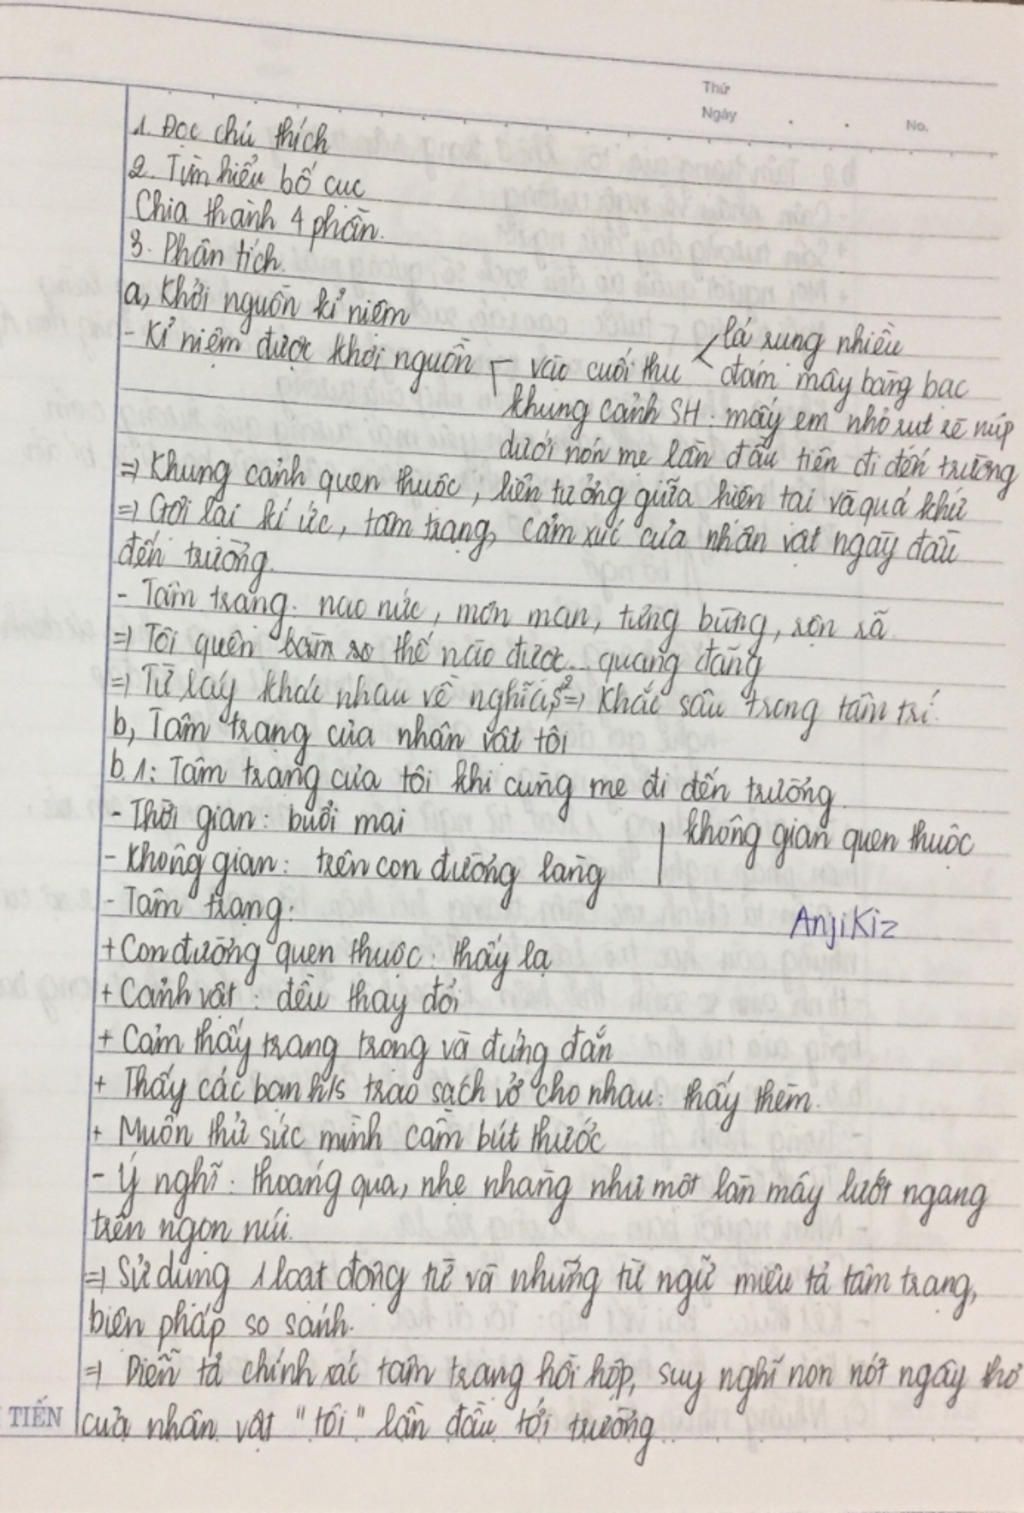 Thứ
Ngày
No.
1. Đọc chú thích
2. Tìm hiểu bố cục
Chia thành 4 phần.
3. Phân tích.
a, Khởi nguồn kỉ niệm
- Kỉ niệm được khơi nguồn vào cuối thu lá rụng nhiều
đám mây bàng bạc
khung cảnh SH: mấy em nhỏ rụt rè núp
dưới nón mẹ lần đầu tiên đi đến trường
=> Khung cảnh quen thuộc, liên tưởng giữa hiện tại và quá khứ
=> Gợi lại kí ức, tâm trạng, cảm xúc của nhân vật ngày đầu
đến trường.
- Tâm trạng: nao nức, mơn man, tưng bừng, rộn rã
=> Tôi quên thế nào được... quang đãng
=> Từ láy khác nhau về nghĩa, s² => Khắc sâu trong tâm trí.
b, Tâm trạng của nhân vật tôi
b.1: Tâm trạng của tôi khi cùng mẹ đi đến trường.
- Thời gian: buổi mai
- Không gian: trên con đường làng
không gian quen thuộc
- Tâm trạng:
AnjiKiz
+ Con đường quen thuộc: thấy lạ
+ Cảnh vật: đều thay đổi
+ Cảm thấy trang trọng và đứng đắn
+ Thấy các bạn h/s trao sách vở cho nhau: thấy thèm.
+ Muốn thử sức mình cầm bút thước
- Ý nghĩ: thoáng qua, nhẹ nhàng như một làn mây lướt ngang
trên ngọn núi.
=> Sử dụng 1 loạt động từ và những từ ngữ miêu tả tâm trạng,
biện pháp so sánh.
=> Diễn tả chính xác tâm trạng hồi hộp, suy nghĩ non nớt ngây thơ
của nhân vật "tôi" lần đầu tới trường
TIẾN